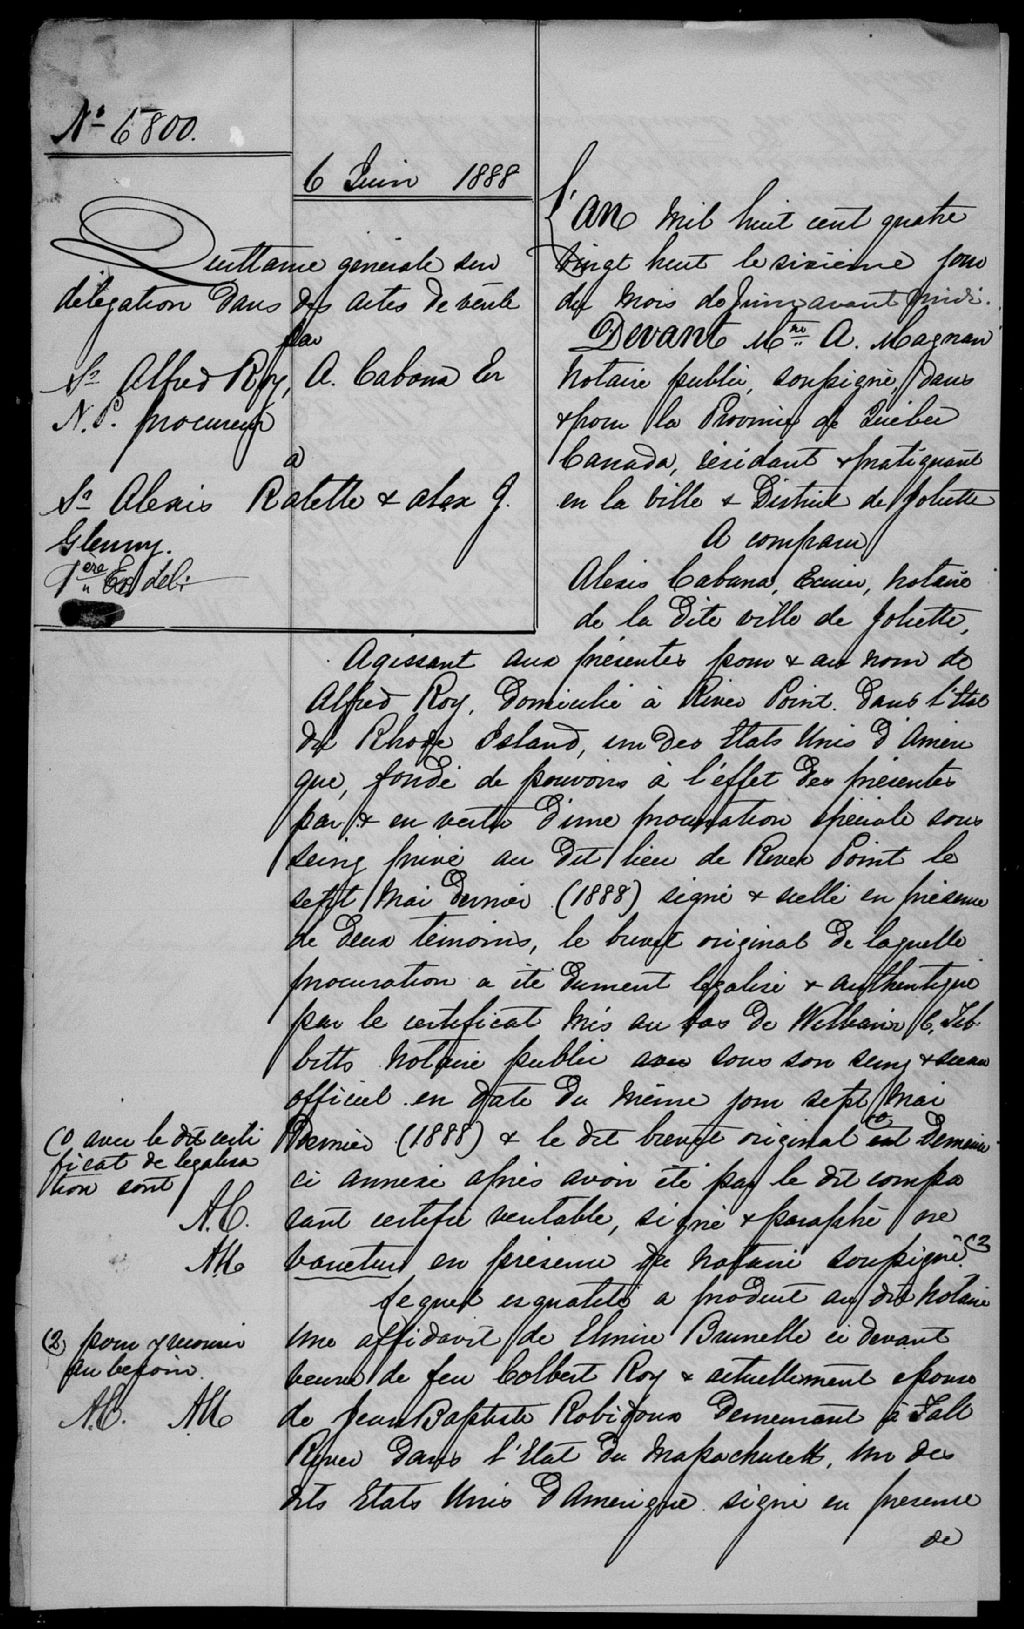 No 6800.
6 Juin 1888
Quittance générale sur
délégation dans des actes de vente
par
Sr Alfred Roy, A. Cabana Er
N.P. procureur
à
Sr Alexis Ratelle & alex J.
Glenny.
1ère Ex. dél:
L'an mil huit cent quatre
vingt huit le sixième jour
du mois de Juin avant midi.
Devant Mtre A. Magnan
Notaire public, soussigné, dans
& pour la Province de Québec
Canada, résidant & pratiquant
en la ville & District de Joliette
A comparu
Alexis Cabana, Ecuier, Notaire
de la dite ville de Joliette,
Agissant aux présentes pour & au nom de
Alfred Roy, domicilié à River Point. dans l'Etat
du Rhode Island, un des Etats Unis d'Améri
que, fondé de pouvoirs à l'effet des présentes
par & en vertu d'une procuration spéciale sous
seing privé au dit lieu de River Point le
sept Mai dernier (1888) signé & scellé en présence
de deux témoins, le brevet original de laquelle
procuration a été dument légalisé & authentiqué
par le certificat mis au bas de William C. Tib
bitts Notaire public avec sous son seing & sceau
officiel en date du même jour sept Mai
dernier (1888) & le dit brevet original (1) est demeuré
ci annexé après avoir été par le dit compa
rant certifié véritable, signé & paraphé ne
varietur en présence du Notaire soussigné. (2
Lequel esqualité a produit au dit Notaire
une affidavit de Elmire Brunelle ci devant
veuve de feu Colbert Roy & actuellement épouse
de Jean Baptiste Robidoux demeurant à Fall
River dans l'Etat du Massachusetts, un des
dits Etats Unis d'Amérique signé en présence
de
(1) avec le dit certi
ficat de légalisa
tion sont
A.C.
AM
(2) pour y recourir
au besoin.
A.C. AM